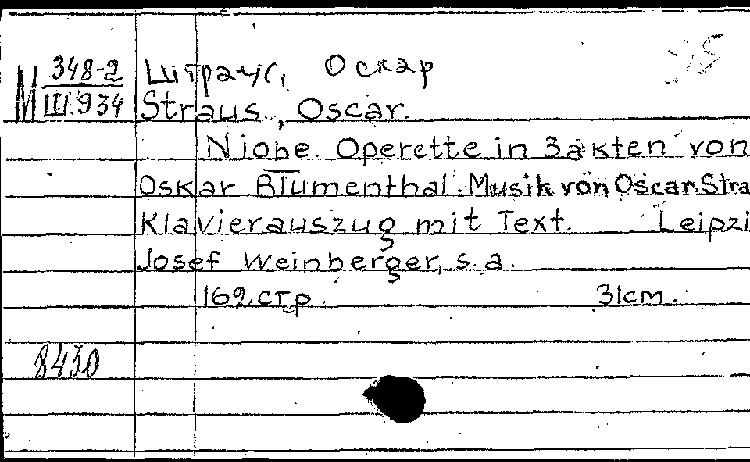 M 348-2
III.934
Штраус, Оскар
Straus, Oscar.
Niobe. Operette in 3 akten von
Oskar Blumenthal. Musik von Oscar Stra
Klavierauszug mit Text. Leipzi
Josef Weinberger, s. a.
162 стр. 31cm.
8430